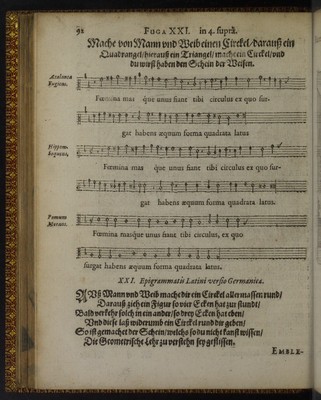 92 FUGA XXI. in 4. suprà.
Mache von Mann vnd Weib einen Circkel / darauß ein
Quadrangel / hierauß ein Triangel / mach ein Circkel / vnd
du wirst haben den Schein der Weisen.
Atalanta
fugiens.
Fœmina mas que unus fiant tibi circulus ex quo sur-
gat habens æquum forma quadrata latus
Hippom.
sequens.
Fœmina mas que unus fiant tibi circulus ex quo sur-
gat habens æquum forma quadrata latus.
Pomum
Morans.
Fœmina masque unus fiant tibi circulus, ex quo
surgat habens æquum forma quadrata latus.
XXI. Epigrammatis Latini versio Germanica.
AUß Mann vnd Weib mache dir ein Circkel aller massen rund /
Darauß zieh ein Figur so vier Ecken hat zur stundt /
Bald verkehr solch in ein ander / so drey Ecken hat eben /
Vnd diese laß widerumb ein Circkel rund dir geben /
So ist gemachet der Schein / welchs so du nicht kanst wissen /
Die Geometrische Lehr zu verstehn sey geflissen.
EMBLE-